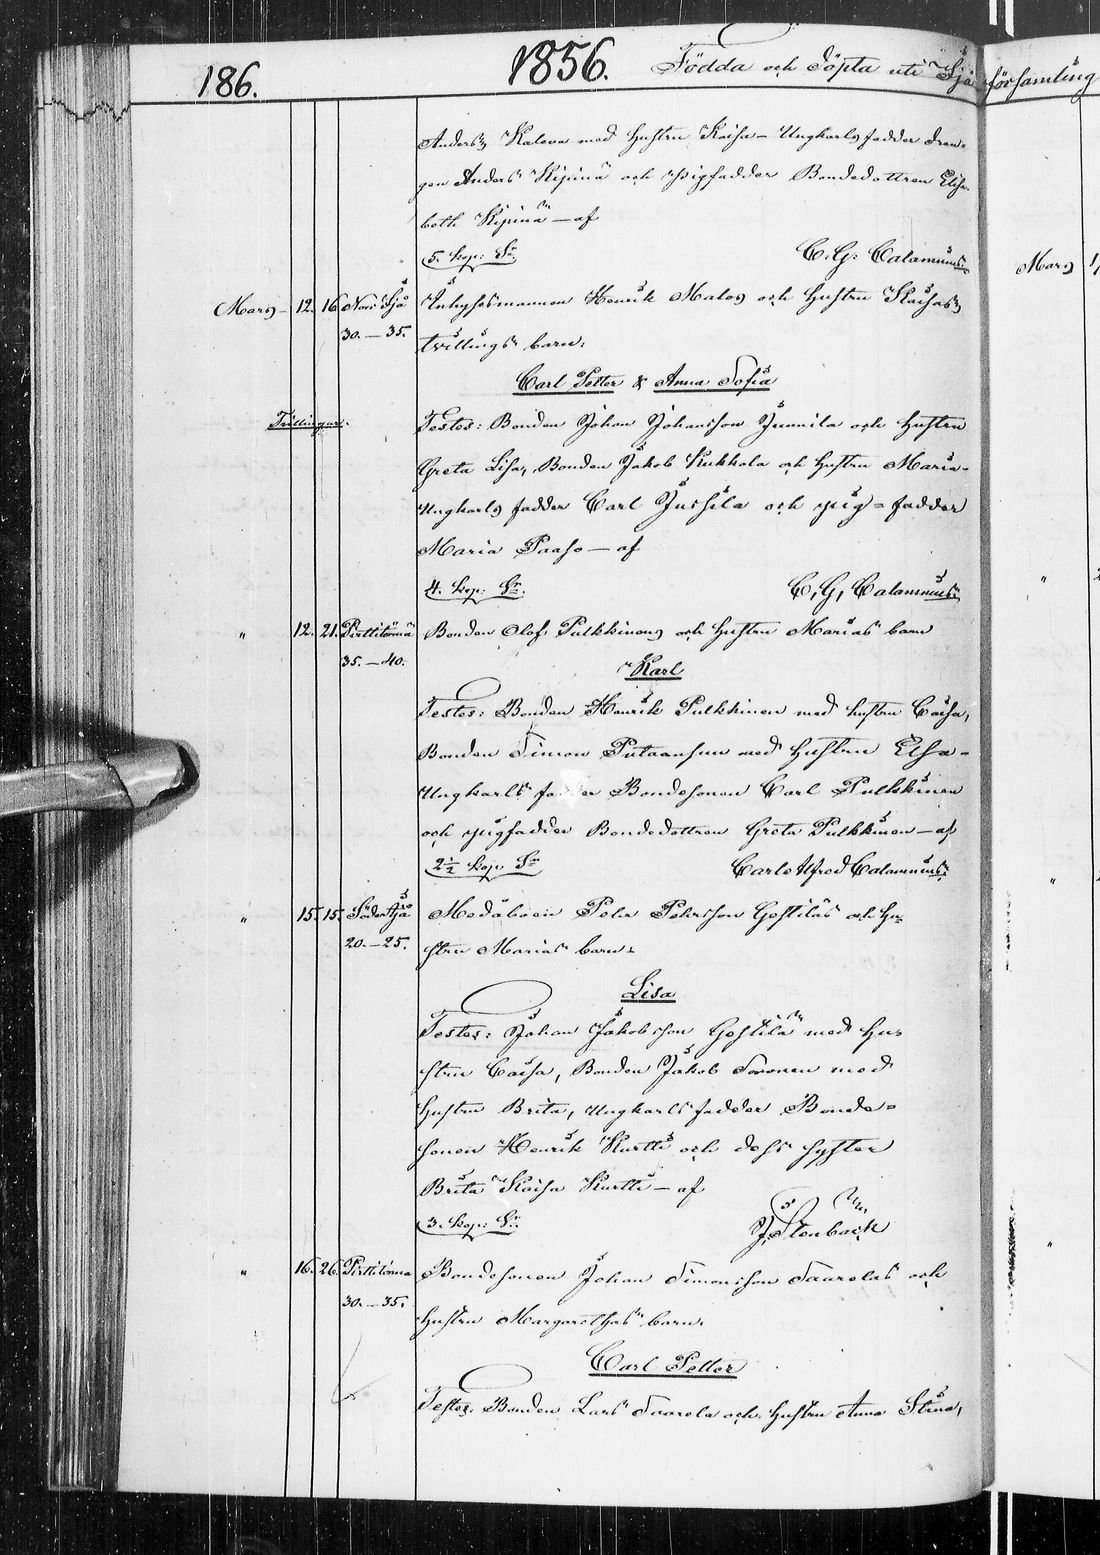 186. 1856. Födda och Döpta uti församling
Anders Kaleva med hustru Kaisa – Ungkarls fadder dren-
gen Anders Kipinä och pigfadder Bondedottren Elisa-
beth Kipinä – af
5. kop: Sr. C. G. Calamnius.
Mars – 12. 16. Norr Sjö Inhysesmannen Henrik Malos och hustru Kaisas
30. – 35. tvillings barn:
Carl Petter & Anna Sofia
Tvillingar. Testes: Bonden Johan Johansson Junnila och hustru
Greta Lisa, Bonden Jakob Kukkola och hustru Maria –
Ungkarls fadder Carl Jussila och pig-fadder
Maria Paaso – af
4. kop: Sr. C. G. Calamnius.
" 12. 21. Pirttitörmä Bonden Olof Pulkkinens och hustru Marias barn
35. – 40. Karl
Testes: Bonden Henrik Pulkkinen med hustru Caisa,
Bonden Simon med hustru Elsa –
Ungkarls fadder Bondesonen Carl Pulkkinen
och pigfadder Bondedottren Greta Pulkkinen – af
2½ kop. Sr Carl Alfred Calamnius.
" 15. 15. Söder Sjö Medåboen Pehr Pehrsson Hestiläs och hu-
20. – 25. stru Marias barn:
Lisa
Testes: Johan Jakobsson Hestilä med hu-
stru Caisa, Bonden Jakob Soronen med
hustru Brita, Ungkarls fadder Bonde-
sonen Henrik Kurtti och dess syster
Brita Kaisa Kurtti – af
3. kop: Sr. J. Stenbäck
" 16. 26. Pirttitörmä Bondesonen Johan Simonsson Saarelas och
30. – 35. hustru Margarethas barn:
Carl Petter
Testes: Bonden Lars Saarela och hustru Anna Stina,
Mars